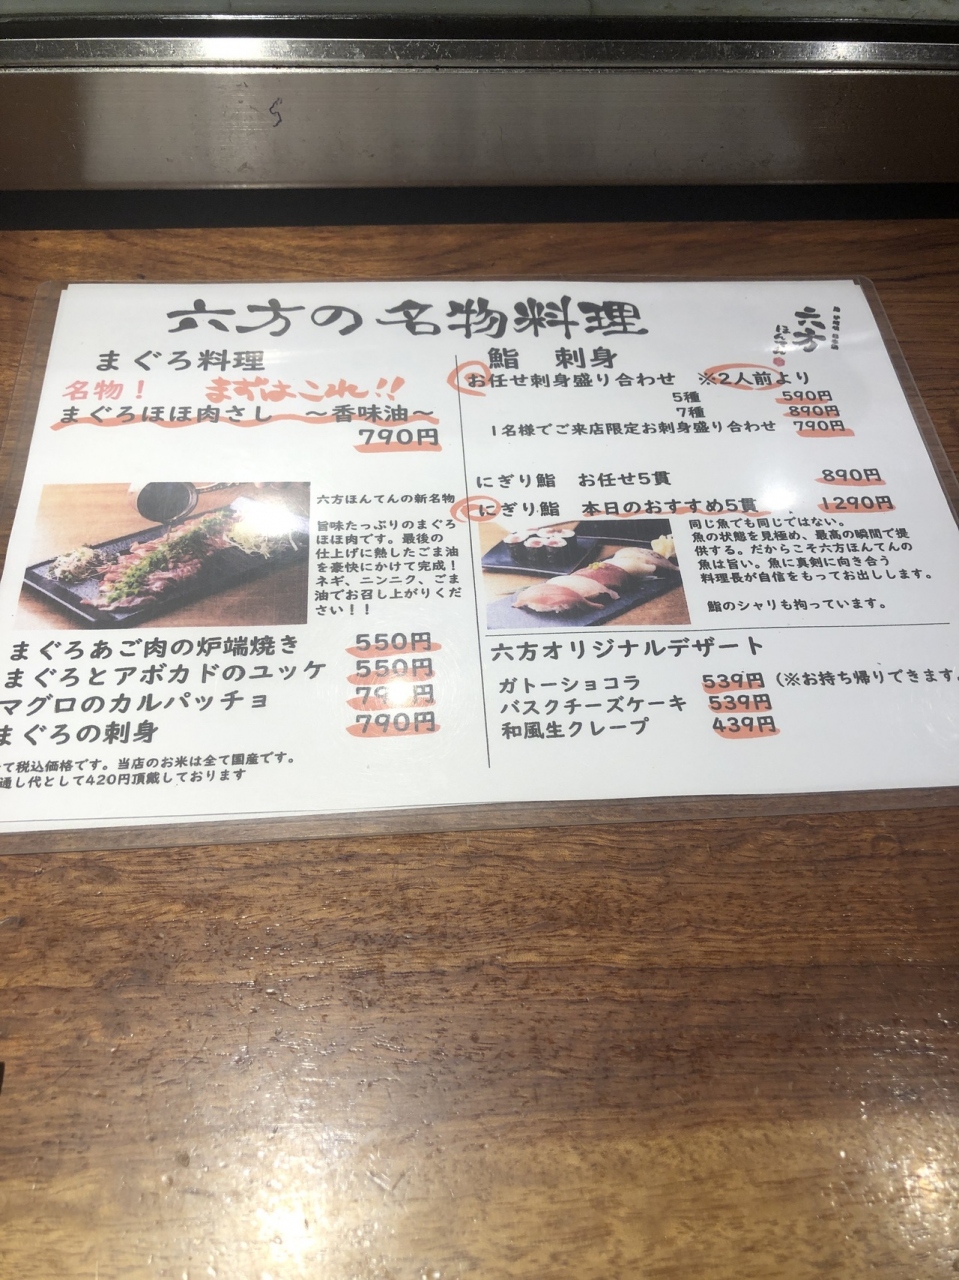 六方の名物料理
六方
ほんてん
まぐろ料理
名物！ まずはこれ!!
まぐろほほ肉さし ～香味油～
790円
六方ほんてんの新名物
旨味たっぷりのまぐろ
ほほ肉です。最後の
仕上げに熱したごま油
を豪快にかけて完成！
ネギ、ニンニク、ごま
油でお召し上がりくだ
さい！！
まぐろあご肉の炉端焼き 550円
まぐろとアボカドのユッケ 550円
マグロのカルパッチョ 790円
まぐろの刺身 790円
て税込価格です。当店のお米は全て国産です。
通し代として420円頂戴しております
鮨 刺身
お任せ刺身盛り合わせ ※2人前より
5種 590円
7種 890円
1名様でご来店限定お刺身盛り合わせ 790円
にぎり鮨 お任せ5貫 890円
にぎり鮨 本日のおすすめ5貫 1290円
同じ魚でも同じではない。
魚の状態を見極め、最高の瞬間で提
供する。だからこそ六方ほんてんの
魚は旨い。魚に真剣に向き合う
料理長が自信をもってお出しします。
鮨のシャリも拘っています。
六方オリジナルデザート
ガトーショコラ 539円（※お持ち帰りできます。
バスクチーズケーキ 539円
和風生クレープ 439円